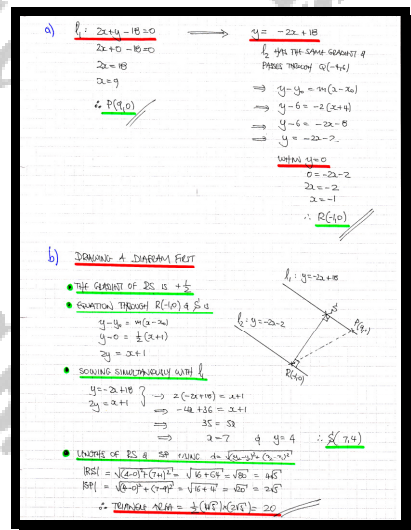 a) l₁: 2x+y-18=0 ⟹ y = -2x+18
2x+0-18=0
2x=18
x=9
∴ P(9,0)
l₂ HAS THE SAME GRADIENT &
PASSES THROUGH Q(-4,6)
⟹ y-y₀ = m(x-x₀)
⟹ y-6 = -2(x+4)
⟹ y-6 = -2x-8
⟹ y = -2x-2
WHEN y=0
0 = -2x-2
2x = -2
x = -1
∴ R(-1,0)
b) DRAWING A DIAGRAM FIRST
• THE GRADIENT OF RS IS +½
• EQUATION THROUGH R(-1,0) & S IS
y-y₀ = m(x-x₀)
y-0 = ½(x+1)
2y = x+1
l₁: y=-2x+18
l₂: y=-2x-2
S
P(9,0)
R(-1,0)
• SOLVING SIMULTANEOUSLY WITH l₁
y=-2x+18
2y = x+1
→ 2(-2x+18) = x+1
⟹ -4x+36 = x+1
⟹ 35 = 5x
⟹ x=7 & y=4 ∴ S(7,4)
• LENGTHS OF RS & SP USING d=√(y₂-y₁)²+(x₂-x₁)²
|RS| = √(4-0)²+(7+1)² = √16+64 = √80 = 4√5
|SP| = √(4-0)²+(7-9)² = √16+4 = √20 = 2√5
∴ TRIANGLE AREA = ½(4√5)(2√5) = 20